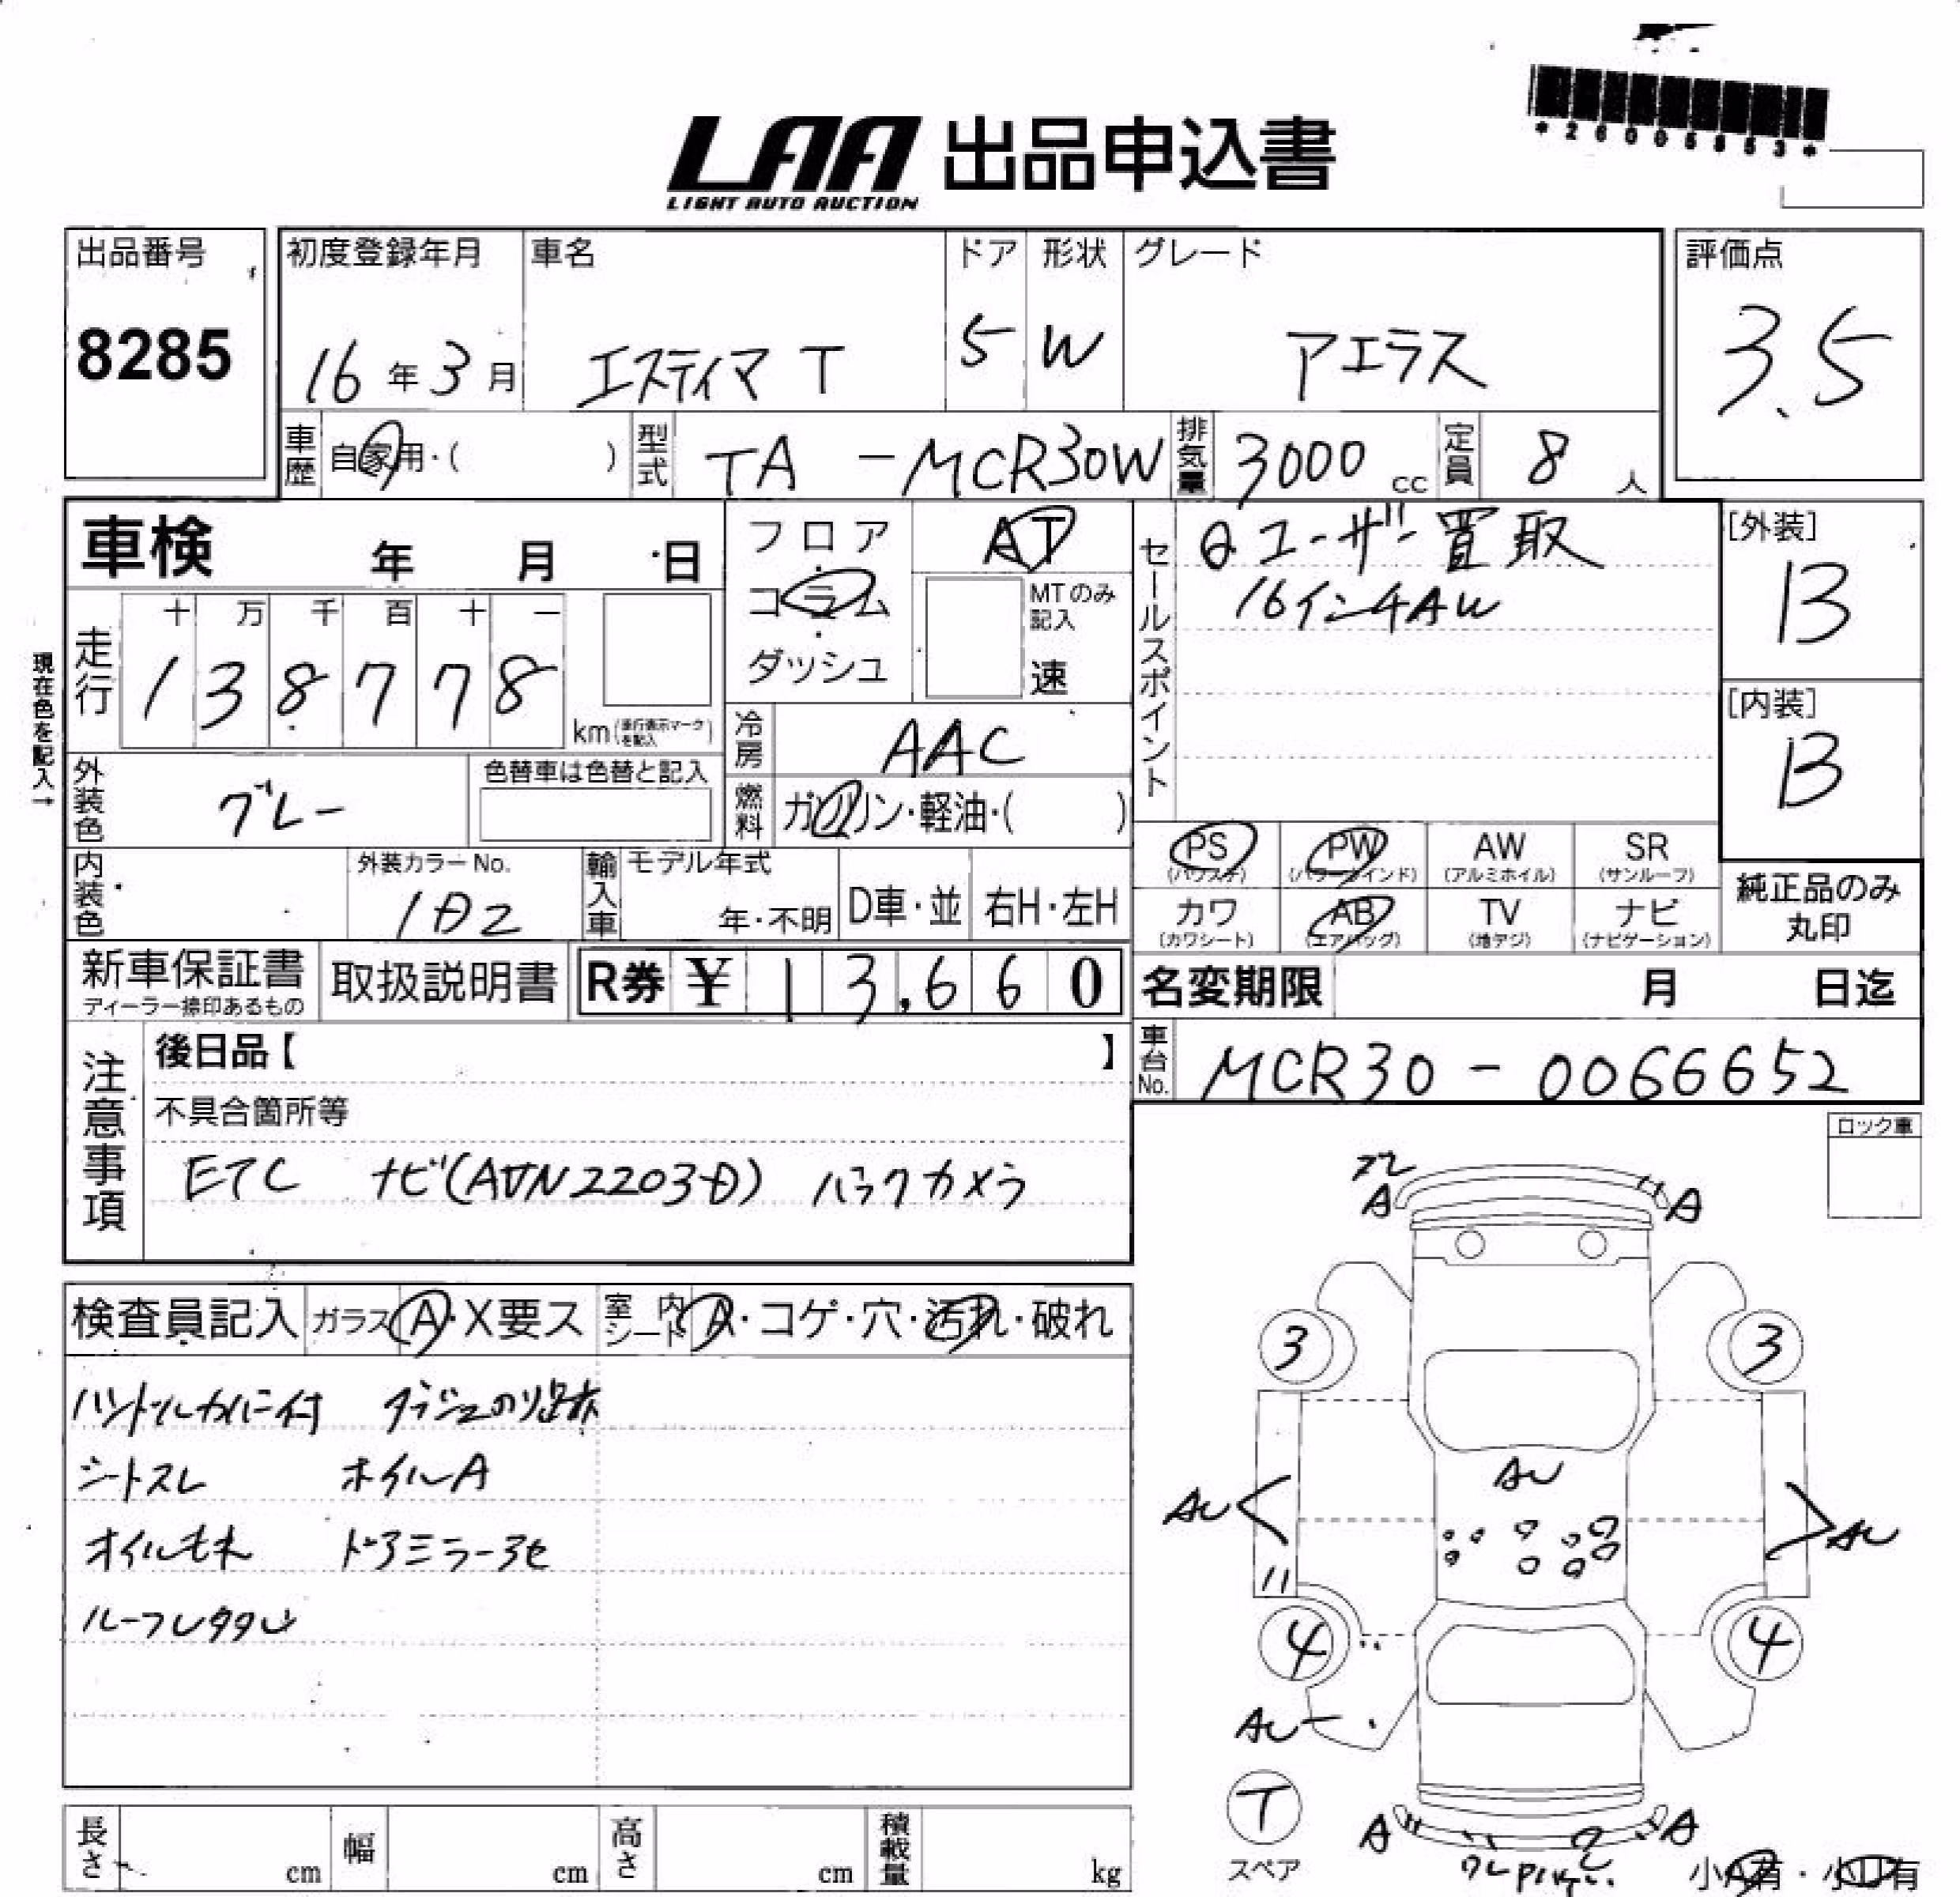 *26005853*
LAA 出品申込書
LIGHT AUTO AUCTION
出品番号 初度登録年月 車名 ドア 形状 グレード 評価点
8285 16年3月 エスティマT 5 W アエラス 3.5
車歴 自家用・( ) 型式 TA-MCR30W 排気量 3000cc 定員 8人
車検 年 月 日
フロア・コラム・ダッシュ
AT
MTのみ記入
速
セールスポイント
ユーザー買取
16インチAW
[外装]
B
[内装]
B
現在色を記入→
走行
十 万 千 百 十 一
1 3 8 7 7 8
km (走行表示マークを記入)
冷房 AAC
外装色 グレー 色替車は色替と記入
燃料 ガソリン・軽油・( )
内装色 外装カラーNo. 1D2
輸入車 モデル年式 年・不明 D車・並 右H・左H
PS (パワステ) PW (パワーウインド) AW (アルミホイル) SR (サンルーフ)
カワ (カワシート) AB (エアバッグ) TV (地デジ) ナビ (ナビゲーション)
純正品のみ丸印
新車保証書 ディーラー捺印あるもの 取扱説明書 R券 ¥13,660
名変期限 月 日迄
車台No. MCR30-0066652
注意事項
後日品【 】
不具合箇所等
ETC ナビ(AVN2203D) バックカメラ
ロック車
検査員記入 ガラス A・X要ス 室内シート A・コゲ・穴・汚れ・破れ
ハンドルカバー付 ダッシュのり跡
シートスレ ホイルA
オイルモレ ドアミラーアセ
A A
3 3
AU
AU AU
4 4
AU
T
スペア
A A
小A有・小U有
長さ cm 幅 cm 高さ cm 積載量 kg